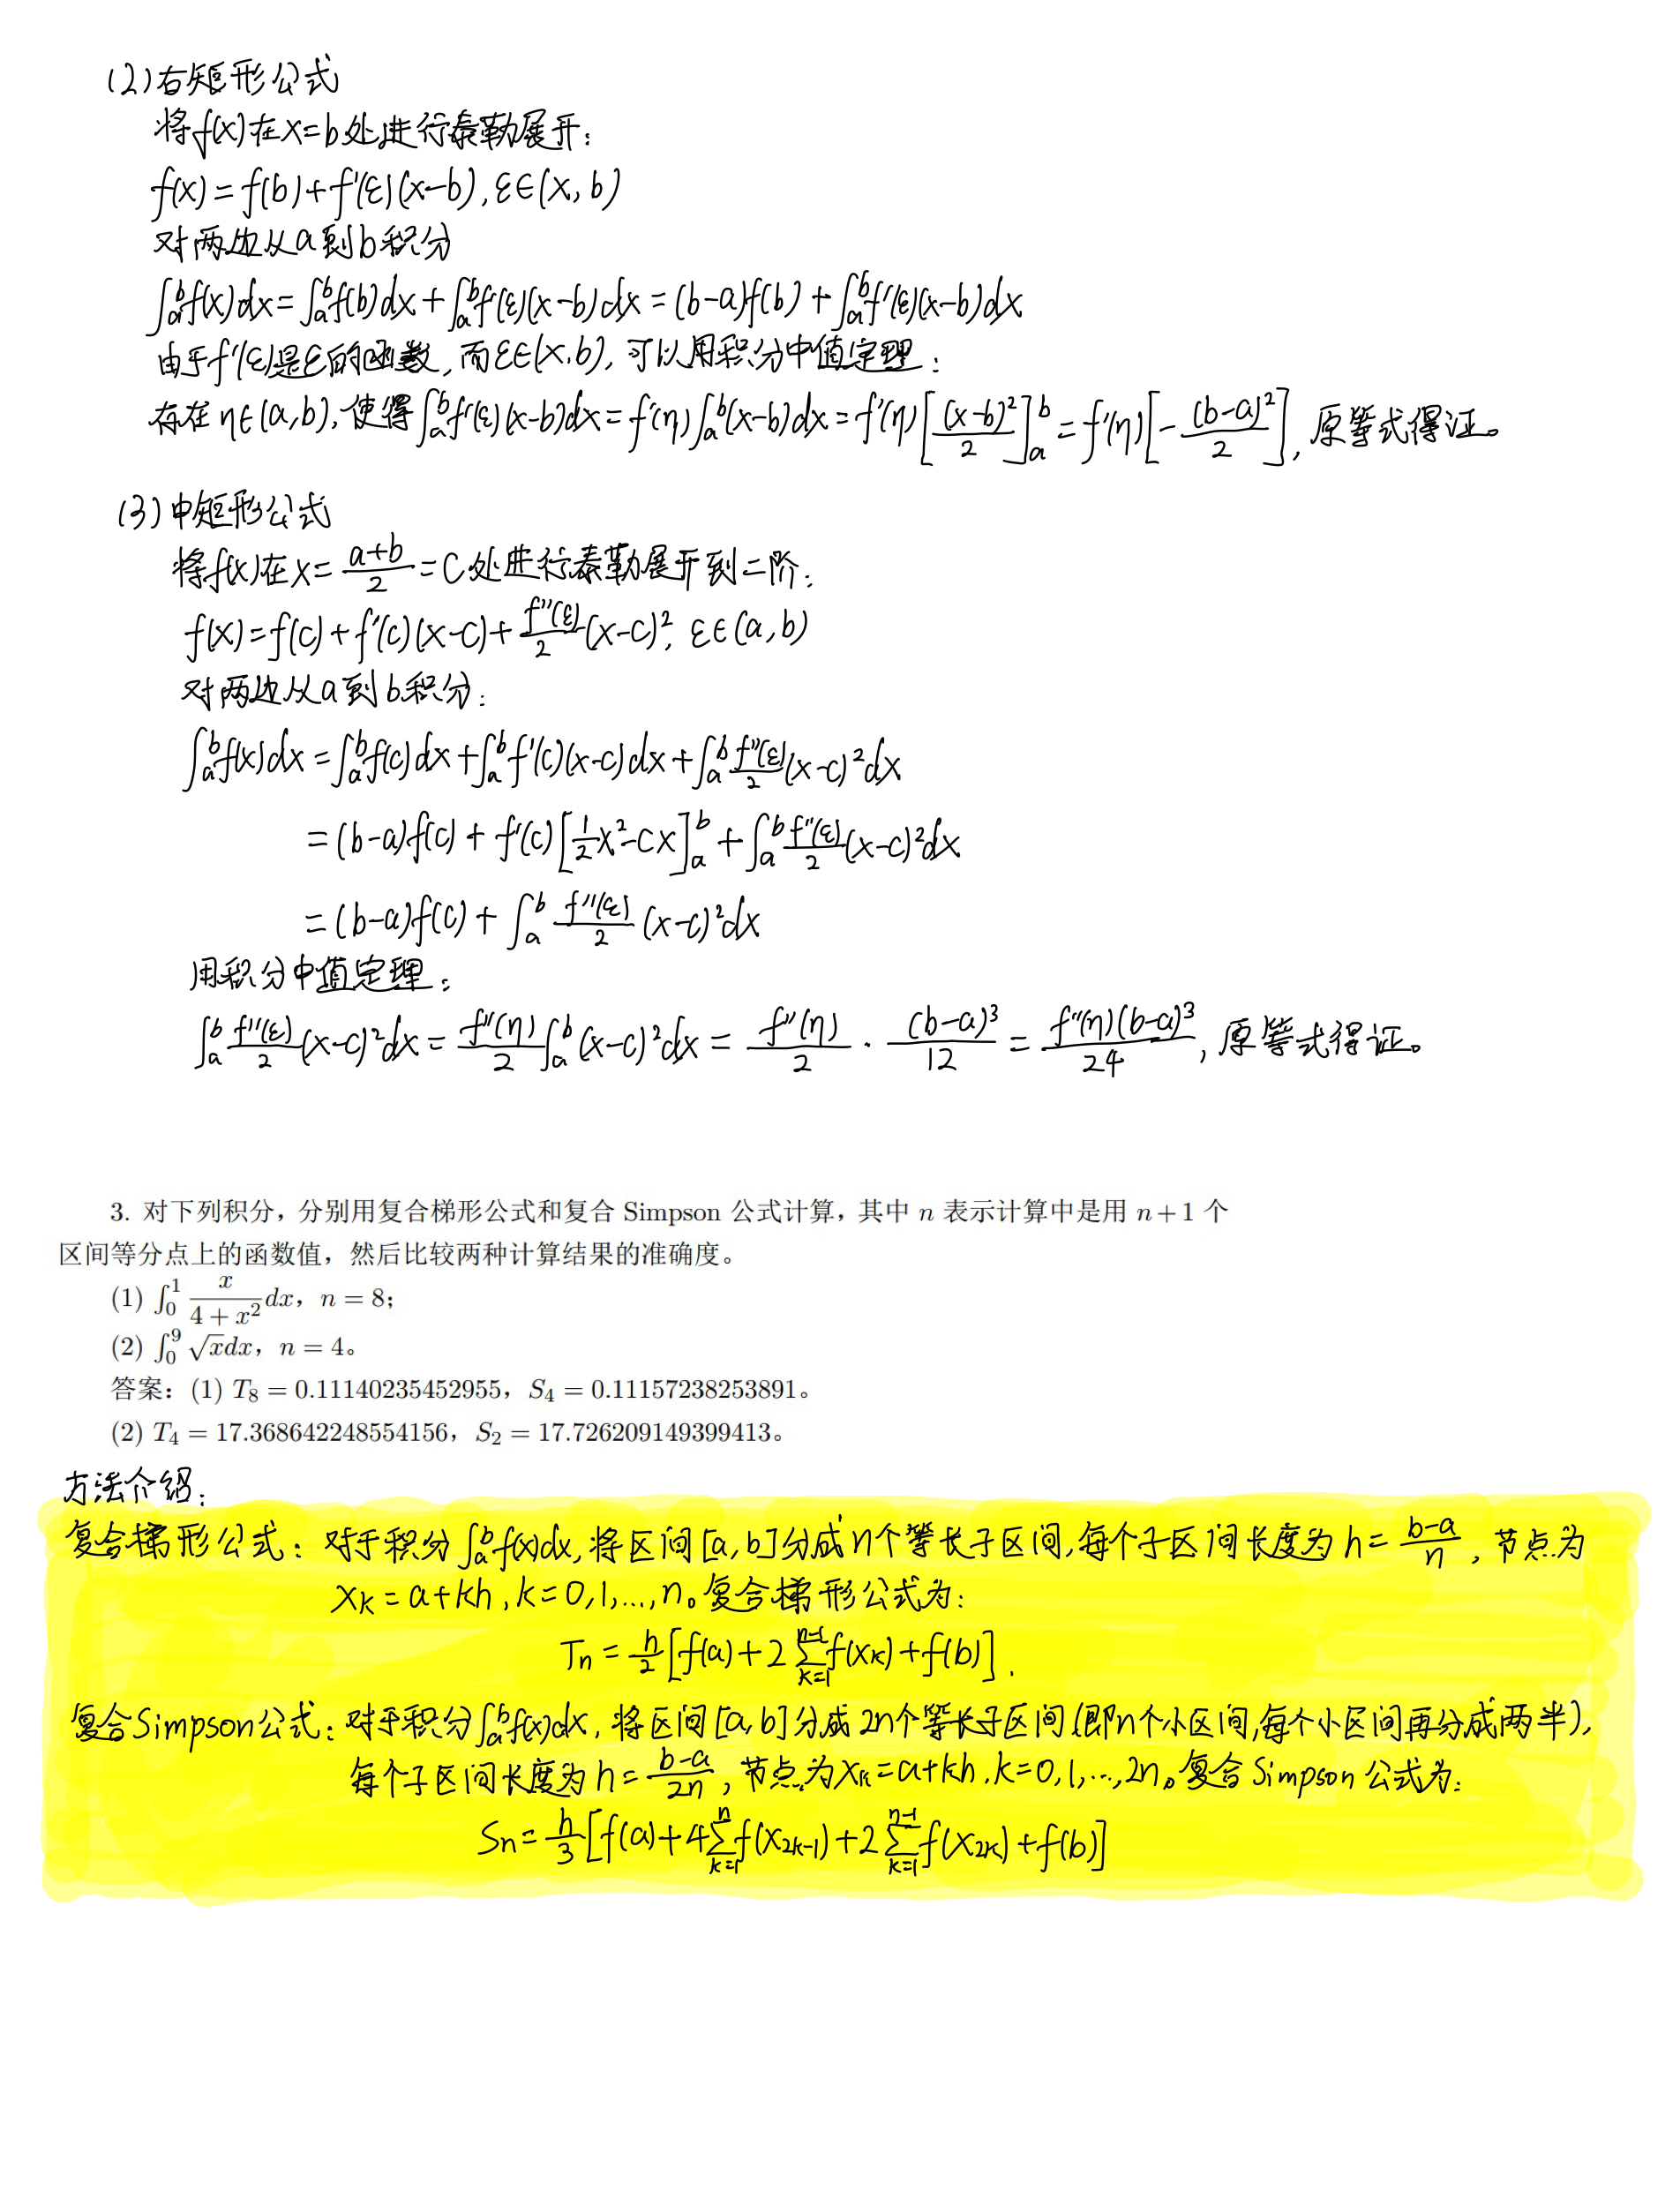 (2)右矩形公式
将f(x)在x=b处进行泰勒展开:
f(x)=f(b)+f'(ε)(x-b), ε∈(x,b)
对两边从a到b积分
∫_a^b f(x)dx=∫_a^b f(b)dx+∫_a^b f'(ε)(x-b)dx=(b-a)f(b)+∫_a^b f'(ε)(x-b)dx
由于f'(ε)是ε的函数,而ε∈(x,b),可以用积分中值定理:
存在η∈(a,b),使得∫_a^b f'(ε)(x-b)dx=f'(η)∫_a^b (x-b)dx=f'(η)[(x-b)²/2]_a^b=f'(η)[-(b-a)²/2],原等式得证。
(3)中矩形公式
将f(x)在x=(a+b)/2=c处进行泰勒展开到二阶:
f(x)=f(c)+f'(c)(x-c)+f''(ε)/2(x-c)², ε∈(a,b)
对两边从a到b积分:
∫_a^b f(x)dx=∫_a^b f(c)dx+∫_a^b f'(c)(x-c)dx+∫_a^b f''(ε)/2(x-c)²dx
=(b-a)f(c)+f'(c)[1/2x²-cx]_a^b+∫_a^b f''(ε)/2(x-c)²dx
=(b-a)f(c)+∫_a^b f''(ε)/2(x-c)²dx
用积分中值定理:
∫_a^b f''(ε)/2(x-c)²dx=f''(η)/2∫_a^b (x-c)²dx=f''(η)/2·(b-a)³/12=f''(η)(b-a)³/24,原等式得证。
3. 对下列积分，分别用复合梯形公式和复合 Simpson 公式计算，其中 n 表示计算中是用 n+1 个
区间等分点上的函数值，然后比较两种计算结果的准确度。
(1) ∫_0^1 x/(4+x²)dx，n = 8；
(2) ∫_0^9 √xdx，n = 4。
答案：(1) T₈ = 0.11140235452955，S₄ = 0.11157238253891。
(2) T₄ = 17.368642248554156，S₂ = 17.726209149399413。
方法介绍:
复合梯形公式: 对于积分∫_a^b f(x)dx,将区间[a,b]分成n个等长子区间,每个子区间长度为h=(b-a)/n,节点为
x_k=a+kh,k=0,1,...,n。复合梯形公式为:
T_n=h/2[f(a)+2∑_{k=1}^{n-1}f(x_k)+f(b)].
复合Simpson公式:对于积分∫_a^b f(x)dx,将区间[a,b]分成2n个等长子区间(即n个小区间,每个小区间再分成两半),
每个子区间长度为h=(b-a)/2n,节点为x_k=a+kh,k=0,1,...,2n。复合Simpson公式为:
S_n=h/3[f(a)+4∑_{k=1}^{n}f(x_{2k-1})+2∑_{k=1}^{n-1}f(x_{2k})+f(b)]